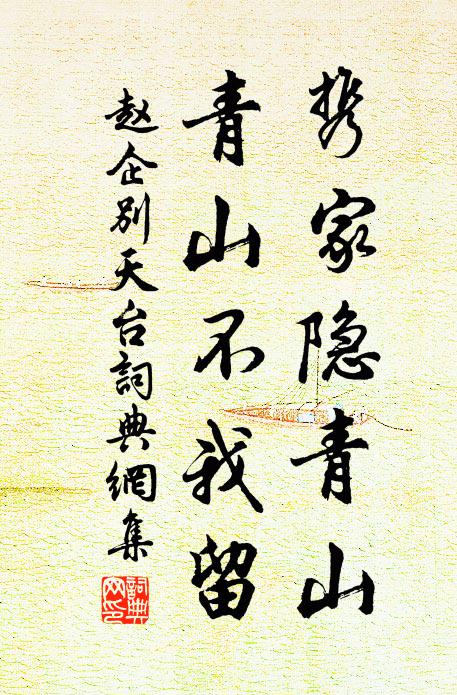 携家隐青山
青山不我留
赵企别天台詞典網集
詞典网印